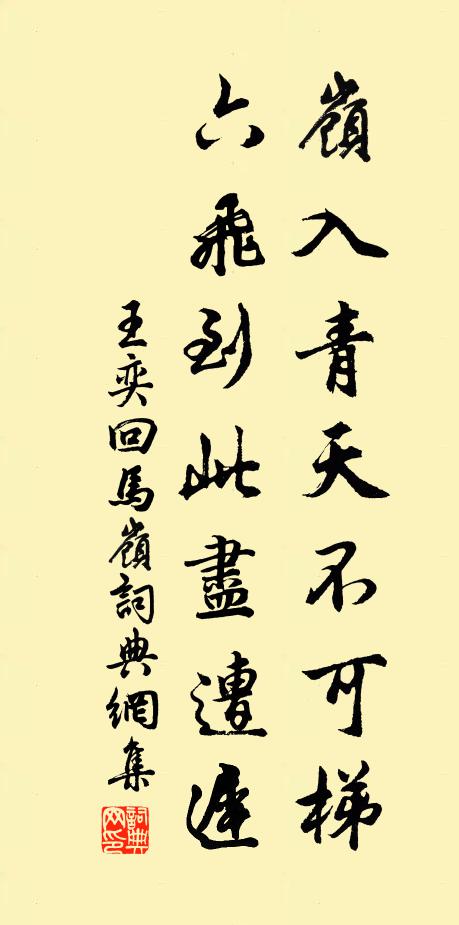 嶺入青天不可梯
六飛到此盡遭遲
王奕回馬嶺詞典網集
詞典网印